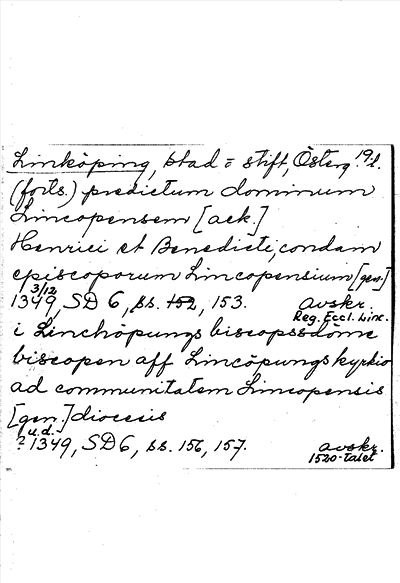 Linköping, stad o stift, Österg. 19. l.
(forts.) predictum dominum
Lincopensem [ack.]
Henrici et Benedicti, condam
episcoporum Lincopensium [gen.]
3/12
1349, SD 6, ss. 152, 153. avskr.
Reg. Eccl. Linc.
i Linchöpungs biscopsdöme
biscopen aff Lincöpungs kyrkio
ad communitatem Lincopensis
[gen.] diocesis
u.d.
? 1349, SD6, ss. 156, 157. avskr.
1520-talet